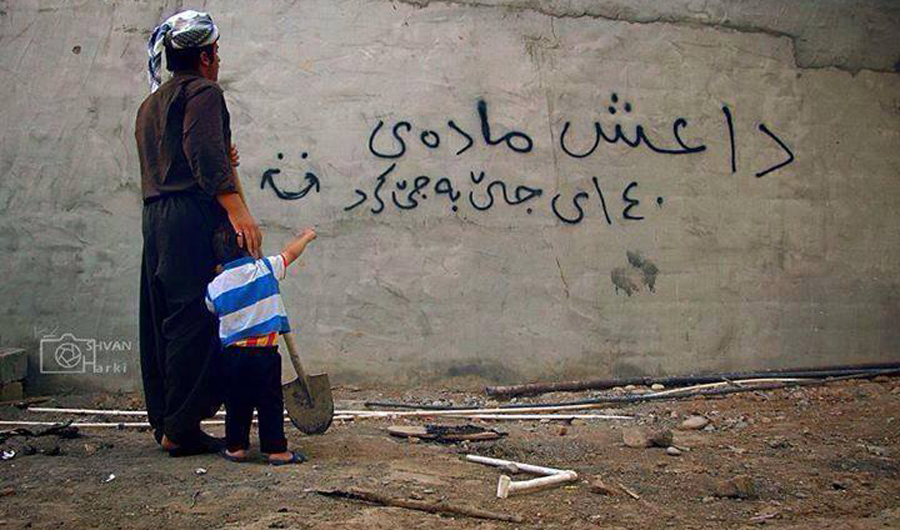 داعش مادەی
١٤٠ ای جێ بەجێ کرد
SHVAN
Harki